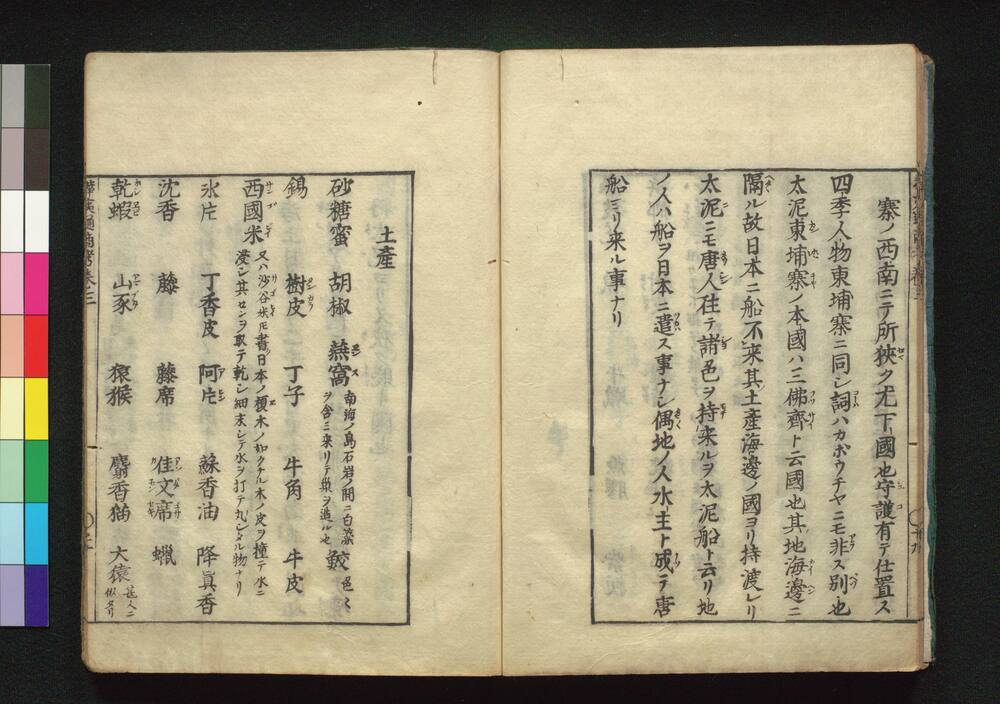 寨ノ西南ニテ所狹ク尤下國也守護有テ仕置ス
四季人物東埔寨ニ同シ詞ハカボウチヤニモ非ス別也
太泥東埔寨ノ本國ハ三佛齊ト云國也其地海邊ニ
隔ル故日本ニ船不来其土産海邊ノ國ヨリ持渡レリ
太泥ニモ唐人住テ諸色ヲ持来ルヲ太泥船ト云リ地
ノ人ハ船ヲ日本ニ遣ス事ナシ偶地ノ人水主ト成テ唐
船ヨリ来ル事ナリ
土産
砂糖蜜 胡椒 燕窩 南海ノ島石岩ノ間ニ白藻ヲ含ミ来リテ巣ヲ造ル也 鮫 色々
錫 樹皮 丁子 牛角 牛皮
西國米 又ハ沙谷米トモ書日本ノ榎木ノ如クナル木ノ皮ヲ撞テ水ニ浸シ其センヲ取テ乾シ細末シテ水ヲ打テ丸シタル物ナリ
氷片 丁香皮 阿片 蘇香油 降眞香
沈香 藤 藤席 佳文席 蠟
乾蝦 山豕 猿猴 麝香猫 大猿 甚人ニ似タリ